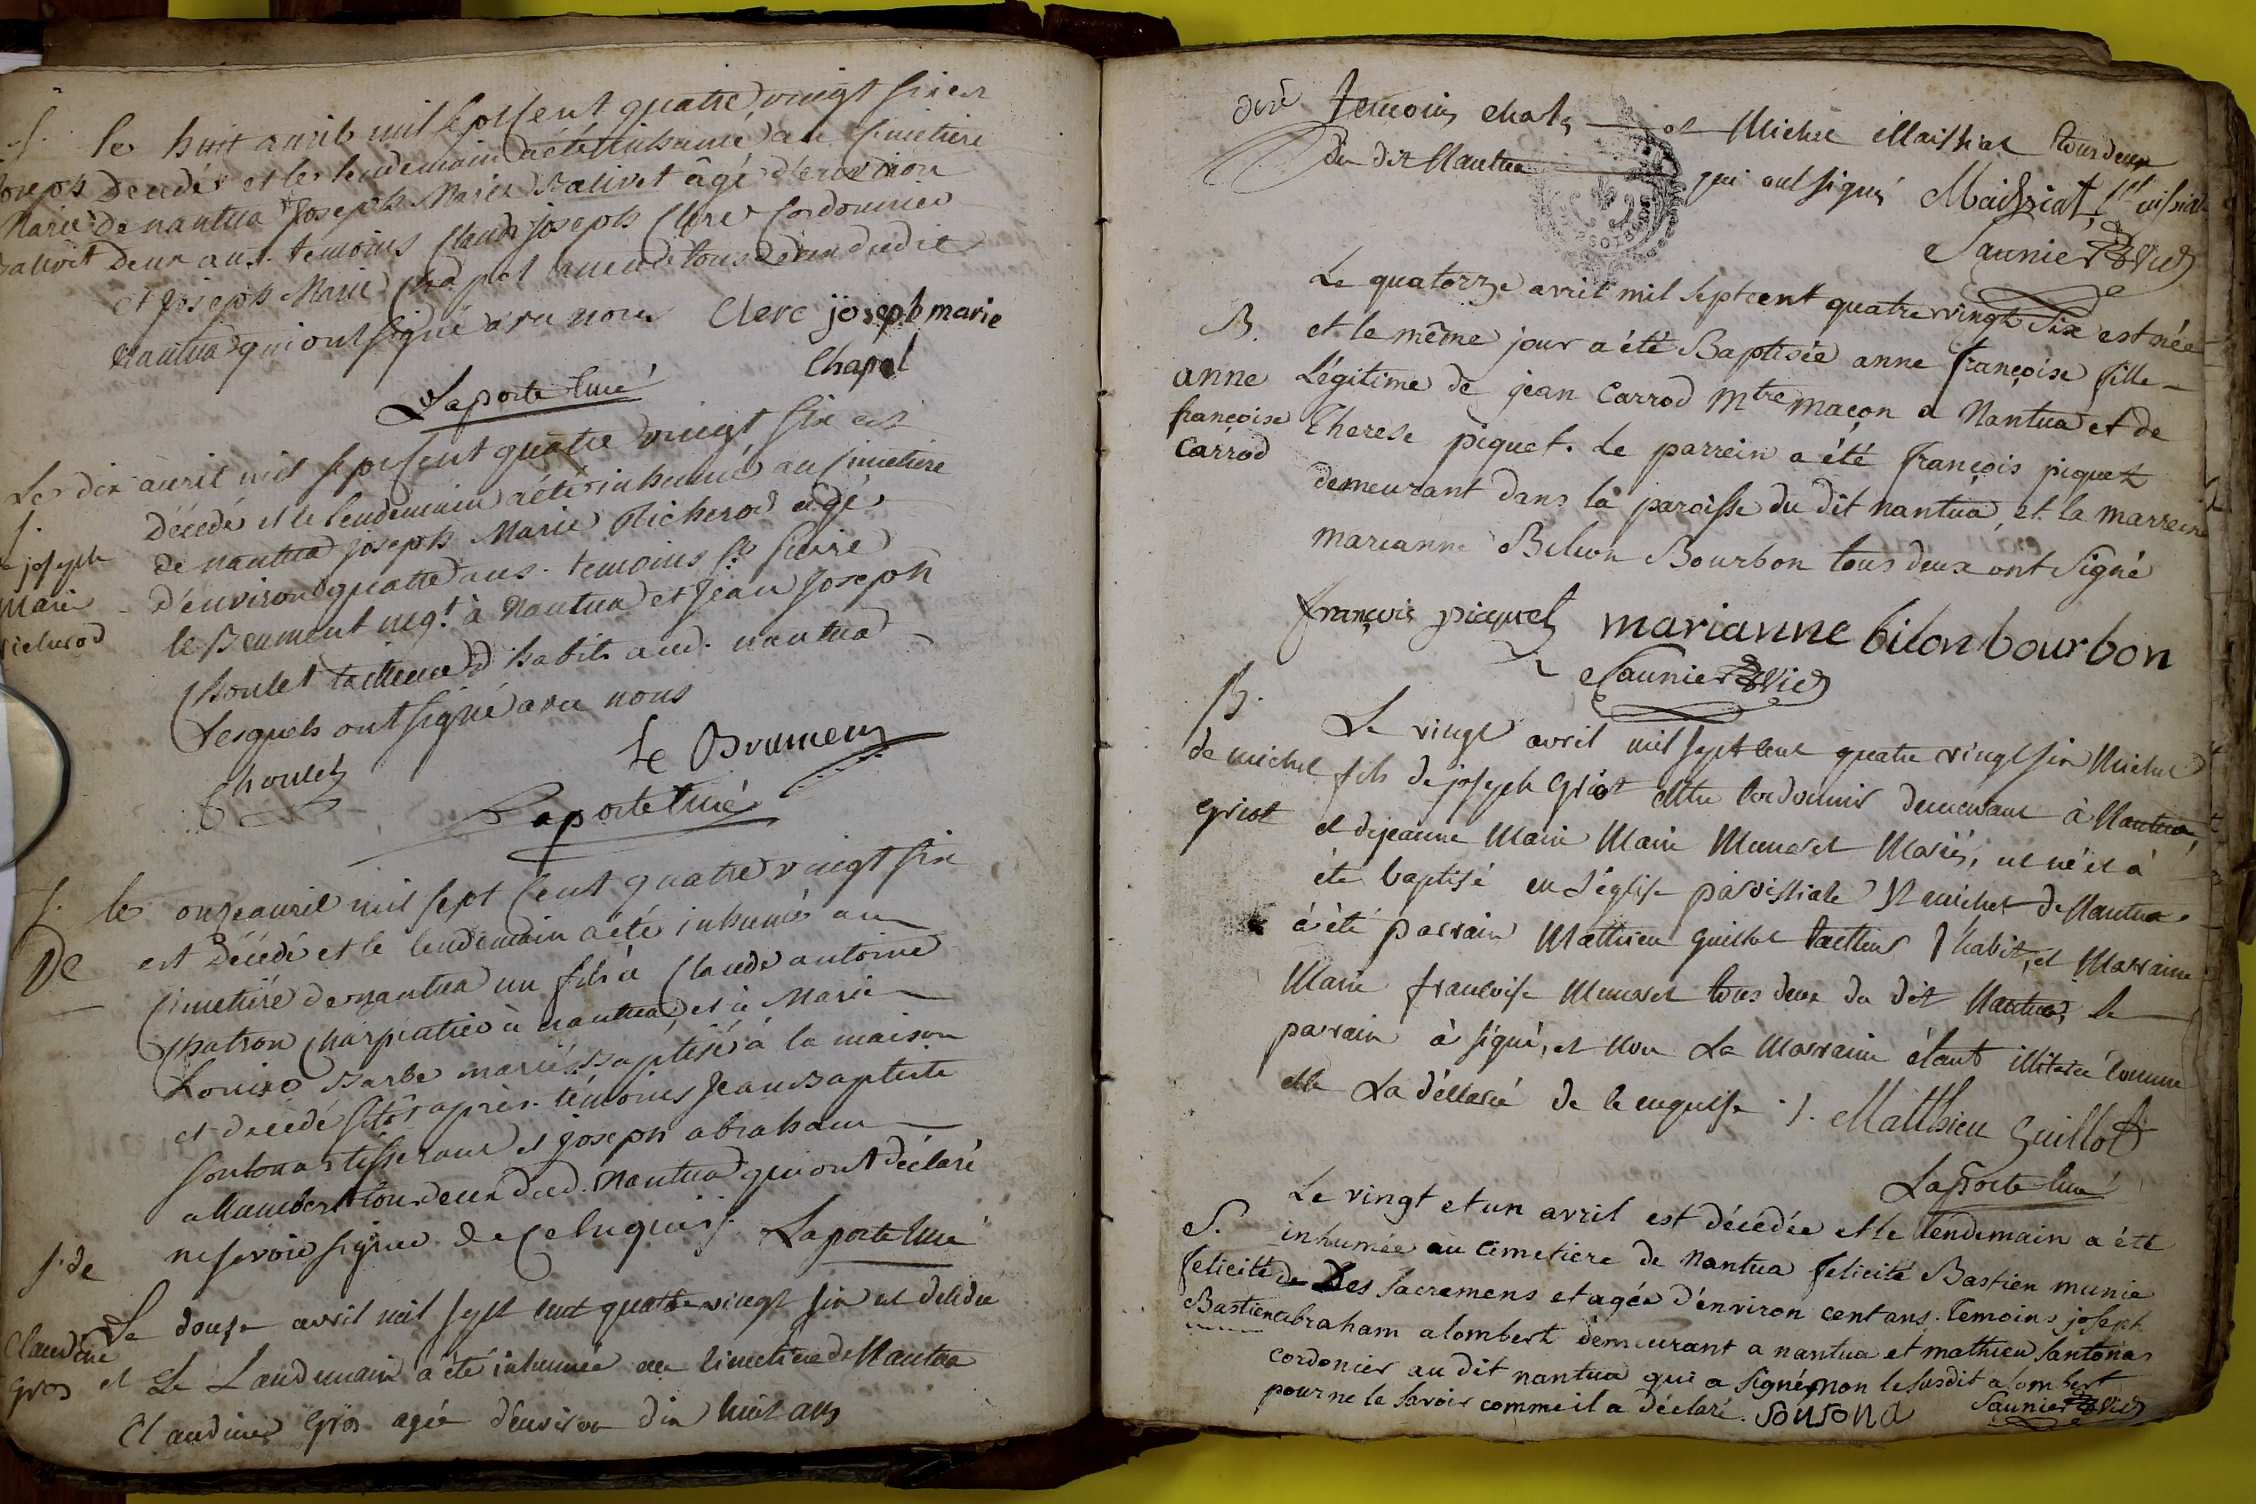 S.
Joseph
Marie
Salivet
le huit avril mil sept cent quatre vingt six est
Decedé et le lendemain a été inhumé au cimetiere
de nantua Joseph Marie Salivet âgé d'environ
deux ans. temoins Claude joseph Clerc Cordonnier
et joseph Marie Chapel tous deux dudit
Nantua qui ont signé avec nous Clerc jöseph marie
Chapel
Laporte Curé
S.
joseph
Marie
Richerod
Le dix avril mil sept cent quatre vingt six est
décédé et le lendemain a été inhumé au cimetiere
de nantua joseph Marie Richerod agé
d'environ quatre ans. temoins
à Nantua et Jean Joseph
Choulet tailleur d'habits aud. nantua
Lesquels ont signé avec nous
Choulet
Laporte Curé
S.
De
le onze avril mil sept Cent quatre vingt six
est Décédé et le lendemain a été inhumé au
Cimetière de nantua un fils à Claude antoine
Chatron Charpentier à nantua et à Marie
Louise Barbe mariés Baptisé à la maison
et decedé sitôt après. témoins Jean Baptiste
Sontonas tisserand et joseph abraham
allombert tous deux dud. Nantua qui ont déclaré
ne savoir signer de Ce enquis. Laporte Curé
S. de
Claudine
Gros
Le douze avril mil sept cent quatre vingt six est décédée
et Le Landemain a été inhumée au cimetiere de Nantua
Claudine Gros agée d'environ dix huit ans
temoins et Michel Maissiat tous deux
du dit Nantua qui ont signé Maissiat
Saunier Vic
B.
anne
françoise
Carrod
Le quatorze avril mil sept cent quatre vingt Six est née
et le même jour a été Baptisée anne françoise fille
Légitime de jean Carrod Mtre maçon a Nantua et de
Therese piquet. Le parrein a été françois piquet
demeurant dans la paroisse du dit nantua, et la marreine
marianne Bilion Bourbon tous deux ont Signé
françois picquet marianne bilon bourbon
Saunier Vic
B.
de michel
Griot
Le vingt avril mil sept cent quatre vingt six Michel
fils de joseph Griot Mtre Cordonnier demeurant à Nantua,
et de jeanne Marie Marie Mariés, est né et à
été baptisé en L'église paroissiale St michel de Nantua.
à été parrain Mathieu Guillot tailleur d'habit, et Marraine
Marie françoise tous deux du dit Nantua, Le
parrain à signé, et Non La Marraine étant illiterée comme
elle La déclaré de ce enquise ./. Matthieu Guillot
Laporte Curé
S.
felicité
Bastien
Le vingt et un avril est décédée et le lendemain a été
inhumée au cimetiere de Nantua felicité Bastien munie
de Des Sacremens et agée d'environ cent ans. temoins joseph
abraham alombert demeurant a nantua et mathieu Santonas
cordonier au dit nantua qui a signé, non le susdit alombert
pour ne le savoir comme il a déclaré. Sontona
Saunier Vic